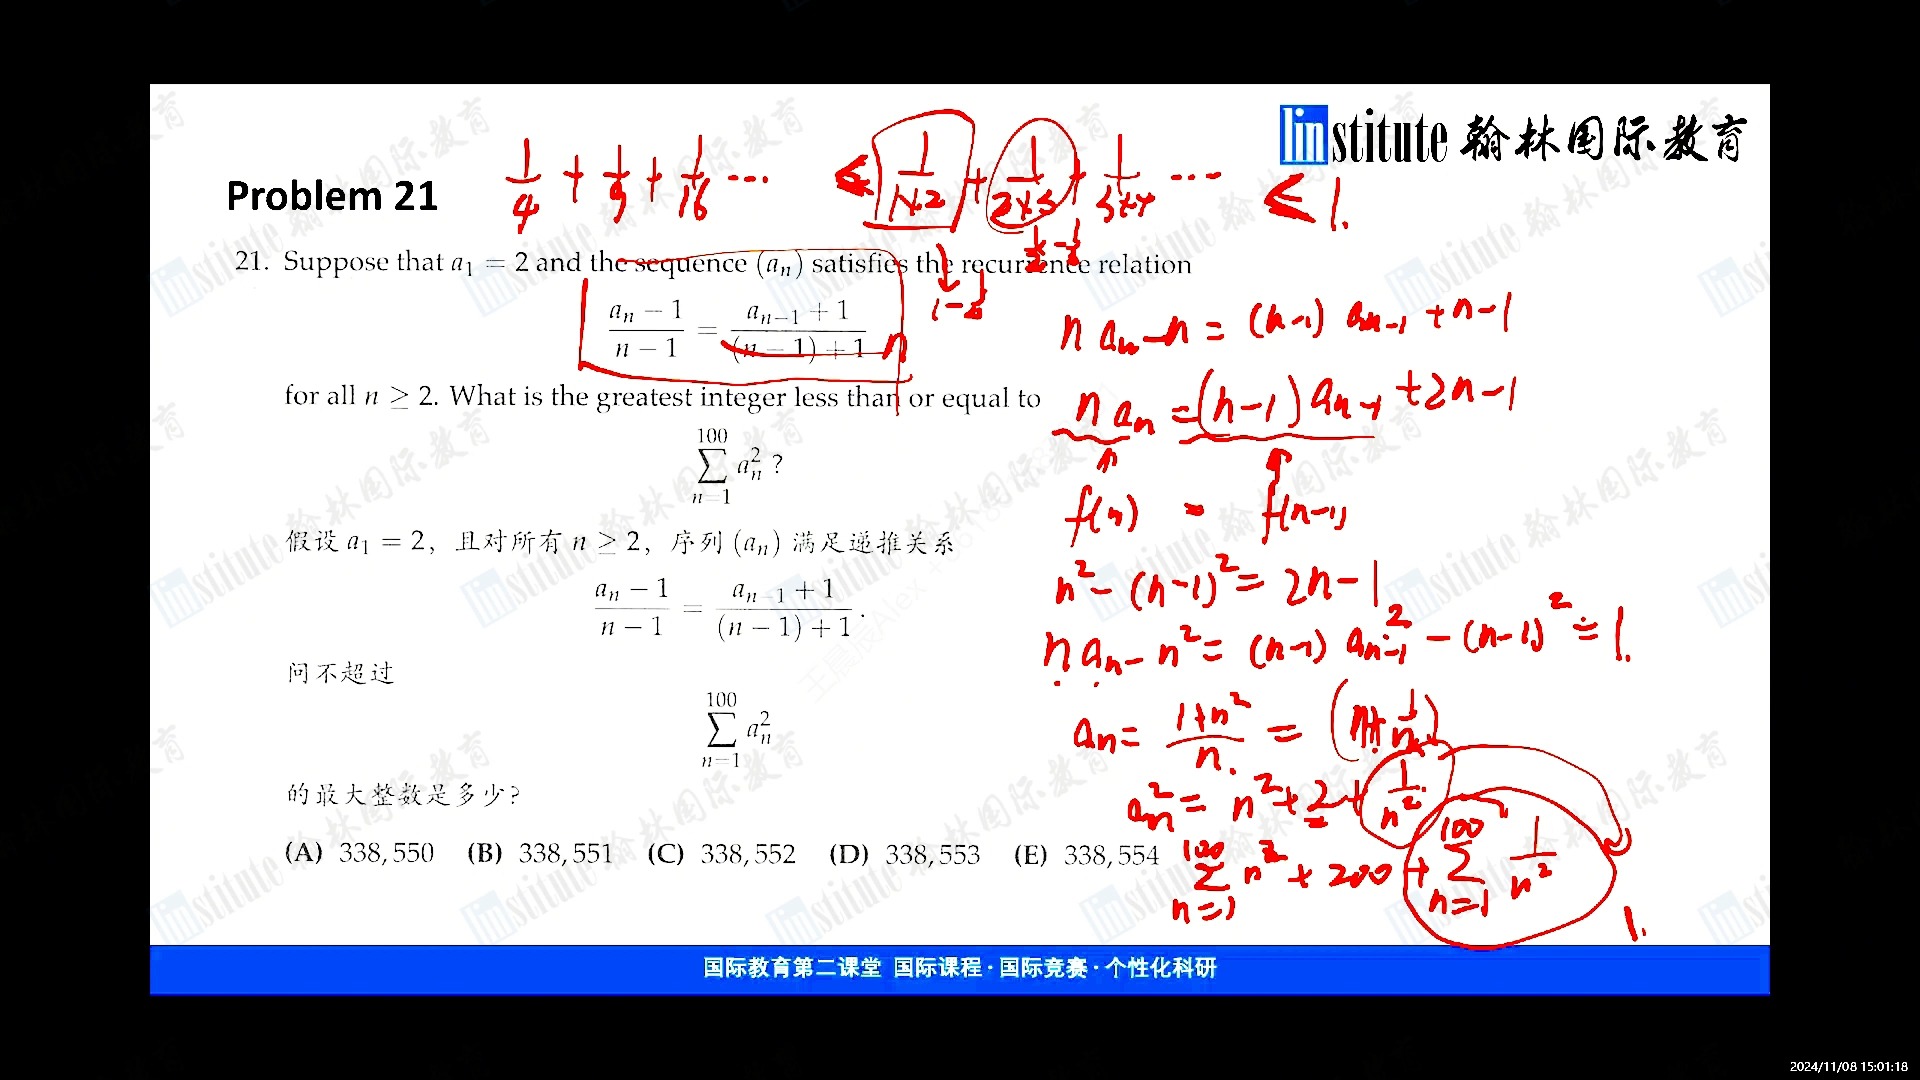 linstitute 翰林国际教育
Problem 21
1/4 + 1/9 + 1/16 ... < 1/1×2 + 1/2×3 + 1/3×4 ... < 1.
21. Suppose that a₁ = 2 and the sequence (aₙ) satisfies the recurrence relation
(aₙ − 1)/(n − 1) = (aₙ₋₁ + 1)/((n − 1) + 1)
n
for all n ≥ 2. What is the greatest integer less than or equal to
100
∑ aₙ² ?
n=1
假设 a₁ = 2，且对所有 n ≥ 2，序列 (aₙ) 满足递推关系
(aₙ − 1)/(n − 1) = (aₙ₋₁ + 1)/((n − 1) + 1) .
问不超过
100
∑ aₙ²
n=1
的最大整数是多少？
(A) 338,550 (B) 338,551 (C) 338,552 (D) 338,553 (E) 338,554
n aₙ − n = (n−1) aₙ₋₁ + n−1
n aₙ = (n−1) aₙ₋₁ + 2n−1
f(n) = f(n−1)
n² − (n−1)² = 2n−1
n aₙ − n² = (n−1) aₙ₋₁ − (n−1)² = 1.
aₙ = (1+n²)/n = (n + 1/n)
aₙ² = n² + 2 + 1/n²
100
∑ n² + 200 + ∑ 1/n²
n=1
1.
国际教育第二课堂 国际课程·国际竞赛·个性化科研
2024/11/08 15:01:18